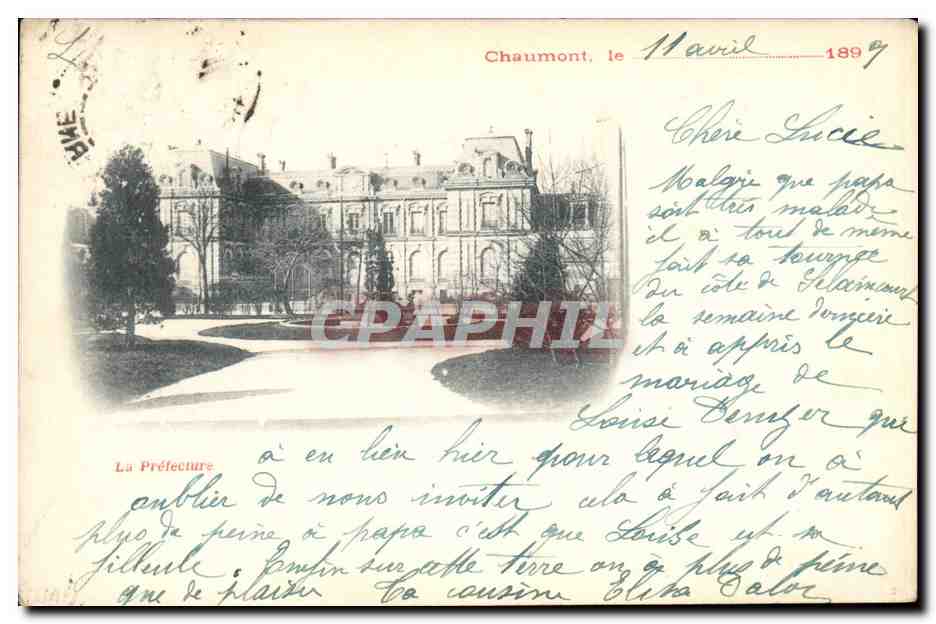 Chaumont, le 11 avril 1899
Chère Lucie
Malgré que papa
soit très malade
il à tout de même
fait sa tournée
du côté de Selaincourt
la semaine dernière
et à appris le
mariage de
Louise que
à eu lieu hier pour lequel on à
oublier de nous inviter cela à fait d'autant
plus de peine à papa c'est que Louise est sa
filleule. Enfin sur cette terre on à plus de peine
que de plaisir Ta cousine Elisa
La Préfecture
CPAPHIL